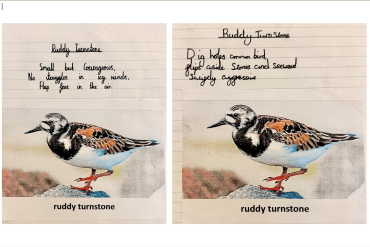 Ruddy Turnstone
Small but Courageous,
No struggles in icy winds,
Flap free in the air.
ruddy turnstone
Ruddy Turnstone
Dig holes common bird,
flipt aside Stones and Seaweed
ruddy turnstone